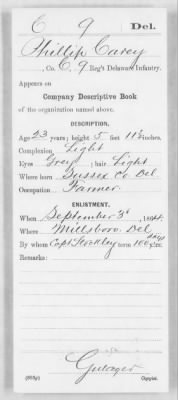 C 9 Del.
Phillip Carey
, Co. C, 9 Reg't Delaware Infantry.
Appears on
Company Descriptive Book
of the organization named above.
DESCRIPTION.
Age 23 years; height 5 feet 11½ inches.
Complexion Light
Eyes Grey; hair Light
Where born Sussex Co Del.
Occupation Farmer
ENLISTMENT.
When September 3d, 1864.
Where Millsboro. Del
By whom Capt Stockley term 100 days
Remarks:
Gulager
(383g) Copyist.